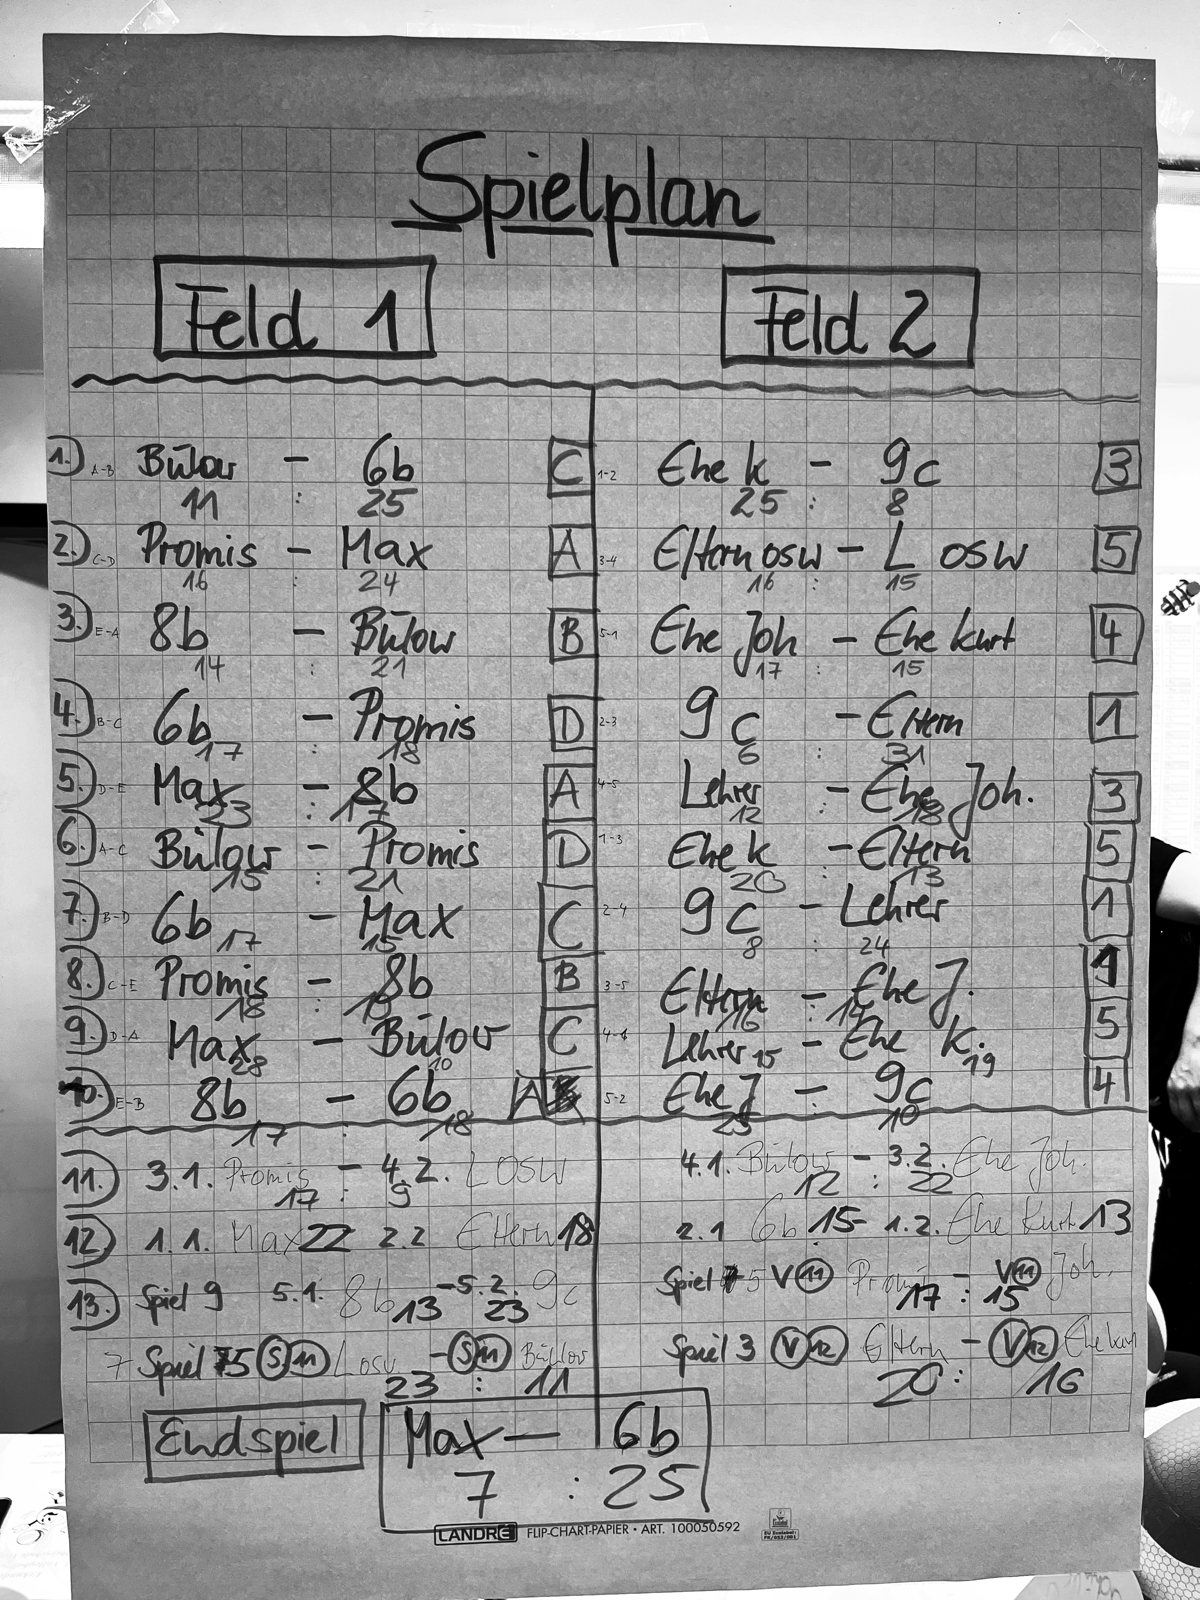 Spielplan
Feld 1 Feld 2
1. A-B Bülow – 6b C 1-2 Ehe k – 9c 3
11 : 25 25 : 8
2. C-D Promis – Max A 3-4 Eltern osw – L osw 5
16 : 24 16 : 15
3. E-A 8b – Bülow B 5-1 Ehe Joh – Ehe kurt 4
14 : 21 17 : 15
4. B-C 6b – Promis D 2-3 9c – Eltern 1
17 : 18 6 : 31
5. D-E Max – 8b A 4-5 Lehrer – Ehe Joh. 3
23 : 17 12 : 18
6. A-C Bülow – Promis D 1-3 Ehe k – Eltern 5
15 : 21 20 : 13
7. B-D 6b – Max C 2-4 9c – Lehrer 1
17 15 8 : 24
8. C-E Promis – 8b B 3-5 Eltern – Ehe J. 1
18 : 19 16 : 14
9. D-A Max – Bülow C 4-1 Lehrer – Ehe k. 5
28 10 15 19
10. E-B 8b – 6b A 5-2 Ehe J – 9c 4
17 : 18 23 10
11. 3.1. Promis – 4.2. LOSW 4.1. Bülow – 3.2. Ehe Joh.
17 : 9 12 : 22
12. 1.1. Max 22 2.2 Eltern 18 2.1 6b 15 - 1.2. Ehe Kurt 13
13. Spiel 9 5.1. 8b 13 – 5.2. 23 9c Spiel 5 V 11 Promi – V 11 Joh.
17 : 15
7 Spiel S 11 Losw – S 11 Bülow Spiel 3 V 12 Eltern – V 12 Ehe kurt
23 : 11 20 : 16
Endspiel Max – 6b
7 : 25
LANDRÉ FLIP-CHART-PAPIER • ART. 100050592